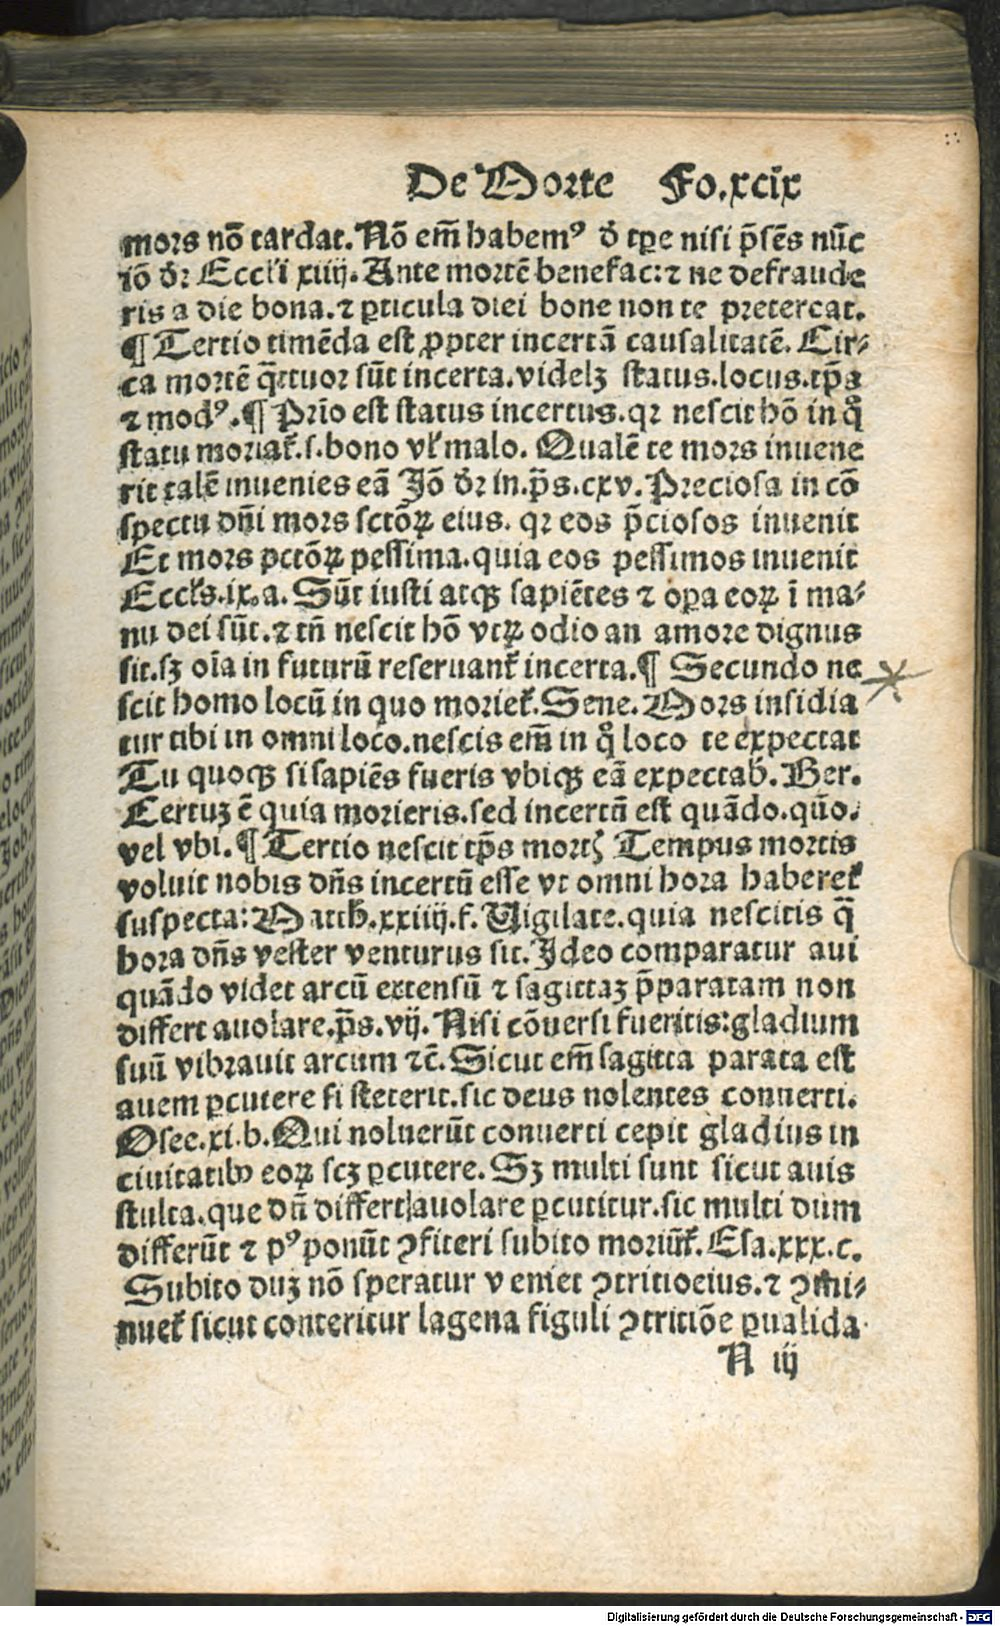 De Morte Fo.xcix
mors nō tardat. Nō em̄ habemꝰ ð tꝑe nisi p̄sēs nūc
iō ðꝛ Eccl'i xiiij. Ante mortē benefac: ⁊ ne defraude
ris a die bona. ⁊ ꝑticula diei bone non te pretereat.
¶ Tertio timēda est ꝓpter incertā causalitatē. Cir⸗
ca mortē q̄ttuor sūt incerta. videlꝫ status. locus. tp̄s
⁊ modꝰ. ¶ Prīo est status incertus. qꝛ nescit hō in q̊
statu moriat᷑. s. bono vl' malo. Qualē te mors inuene
rit talē inuenies eā Jō ðꝛ in. p̄s. cxv. Preciosa in cō
spectu dn̄i mors sctōꝝ eius. qꝛ eos p̄ciosos inuenit
Et mors pctōꝝ pessima. quia eos pessimos inuenit
Eccl's. ix. a. Sūt iusti atqꝫ sapiētes ⁊ oꝑa eoꝝ ī ma⸗
nu dei sūt. ⁊ tn̄ nescit hō vtꝝ odio an amore dignus
sit. sꝫ oīa in futurū reseruant᷑ incerta. ¶ Secundo ne
scit homo locū in quo moriet᷑. Sene. Mors insidia
tur tibi in omni loco. nescis em̄ in q̊ loco te expectat
Tu quoqꝫ si sapiēs fueris vbiqꝫ eā expectab̄. Ber.
Certuꝫ ē quia morieris. sed incertū est quādo. quō.
vel vbi. ¶ Tertio nescit tp̄s mortꝭ Tempus mortis
voluit nobis dn̄s incertū esse vt omni hora haberet᷑
suspecta: Matth. xxiiij. f. Vigilate. quia nescitis q̄
hora dn̄s vester venturus sit. Ideo comparatur aui
quādo videt arcū extensū ⁊ sagittaꝫ p̄paratam non
differt auolare. p̄s. vij. Nisi cōuersi fueritis: gladium
suū vibrauit arcum ⁊c̄. Sicut em̄ sagitta parata est
auem ꝑcutere si steterit. sic deus nolentes conuerti.
Osee. xi. b. Qui noluerūt conuerti cepit gladius in
ciuitatibꝫ eoꝝ scꝫ ꝑcutere. Sꝫ multi sunt sicut auis
stulta. que dn̄ differt auolare ꝑcutitur. sic multi dum
differūt ⁊ pꝰponūt ꝯfiteri subito moriūt᷑. Esa. xxx. c.
Subito duꝫ nō speratur veniet ꝯtritio eius. ⁊ ꝯmi⸗
nuet᷑ sicut conteritur lagena figuli ꝯtritiōe ꝑualida
N iij
Digitalisierung gefördert durch die Deutsche Forschungsgemeinschaft - DFG